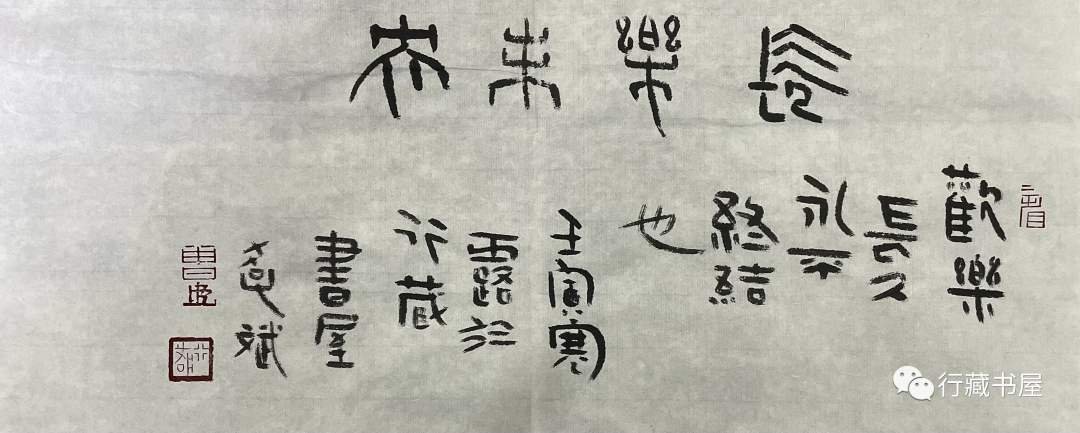 長樂未央
歡樂
長久
永不
終結
也
壬寅寒
露於
行藏
書屋
斌
行藏书屋